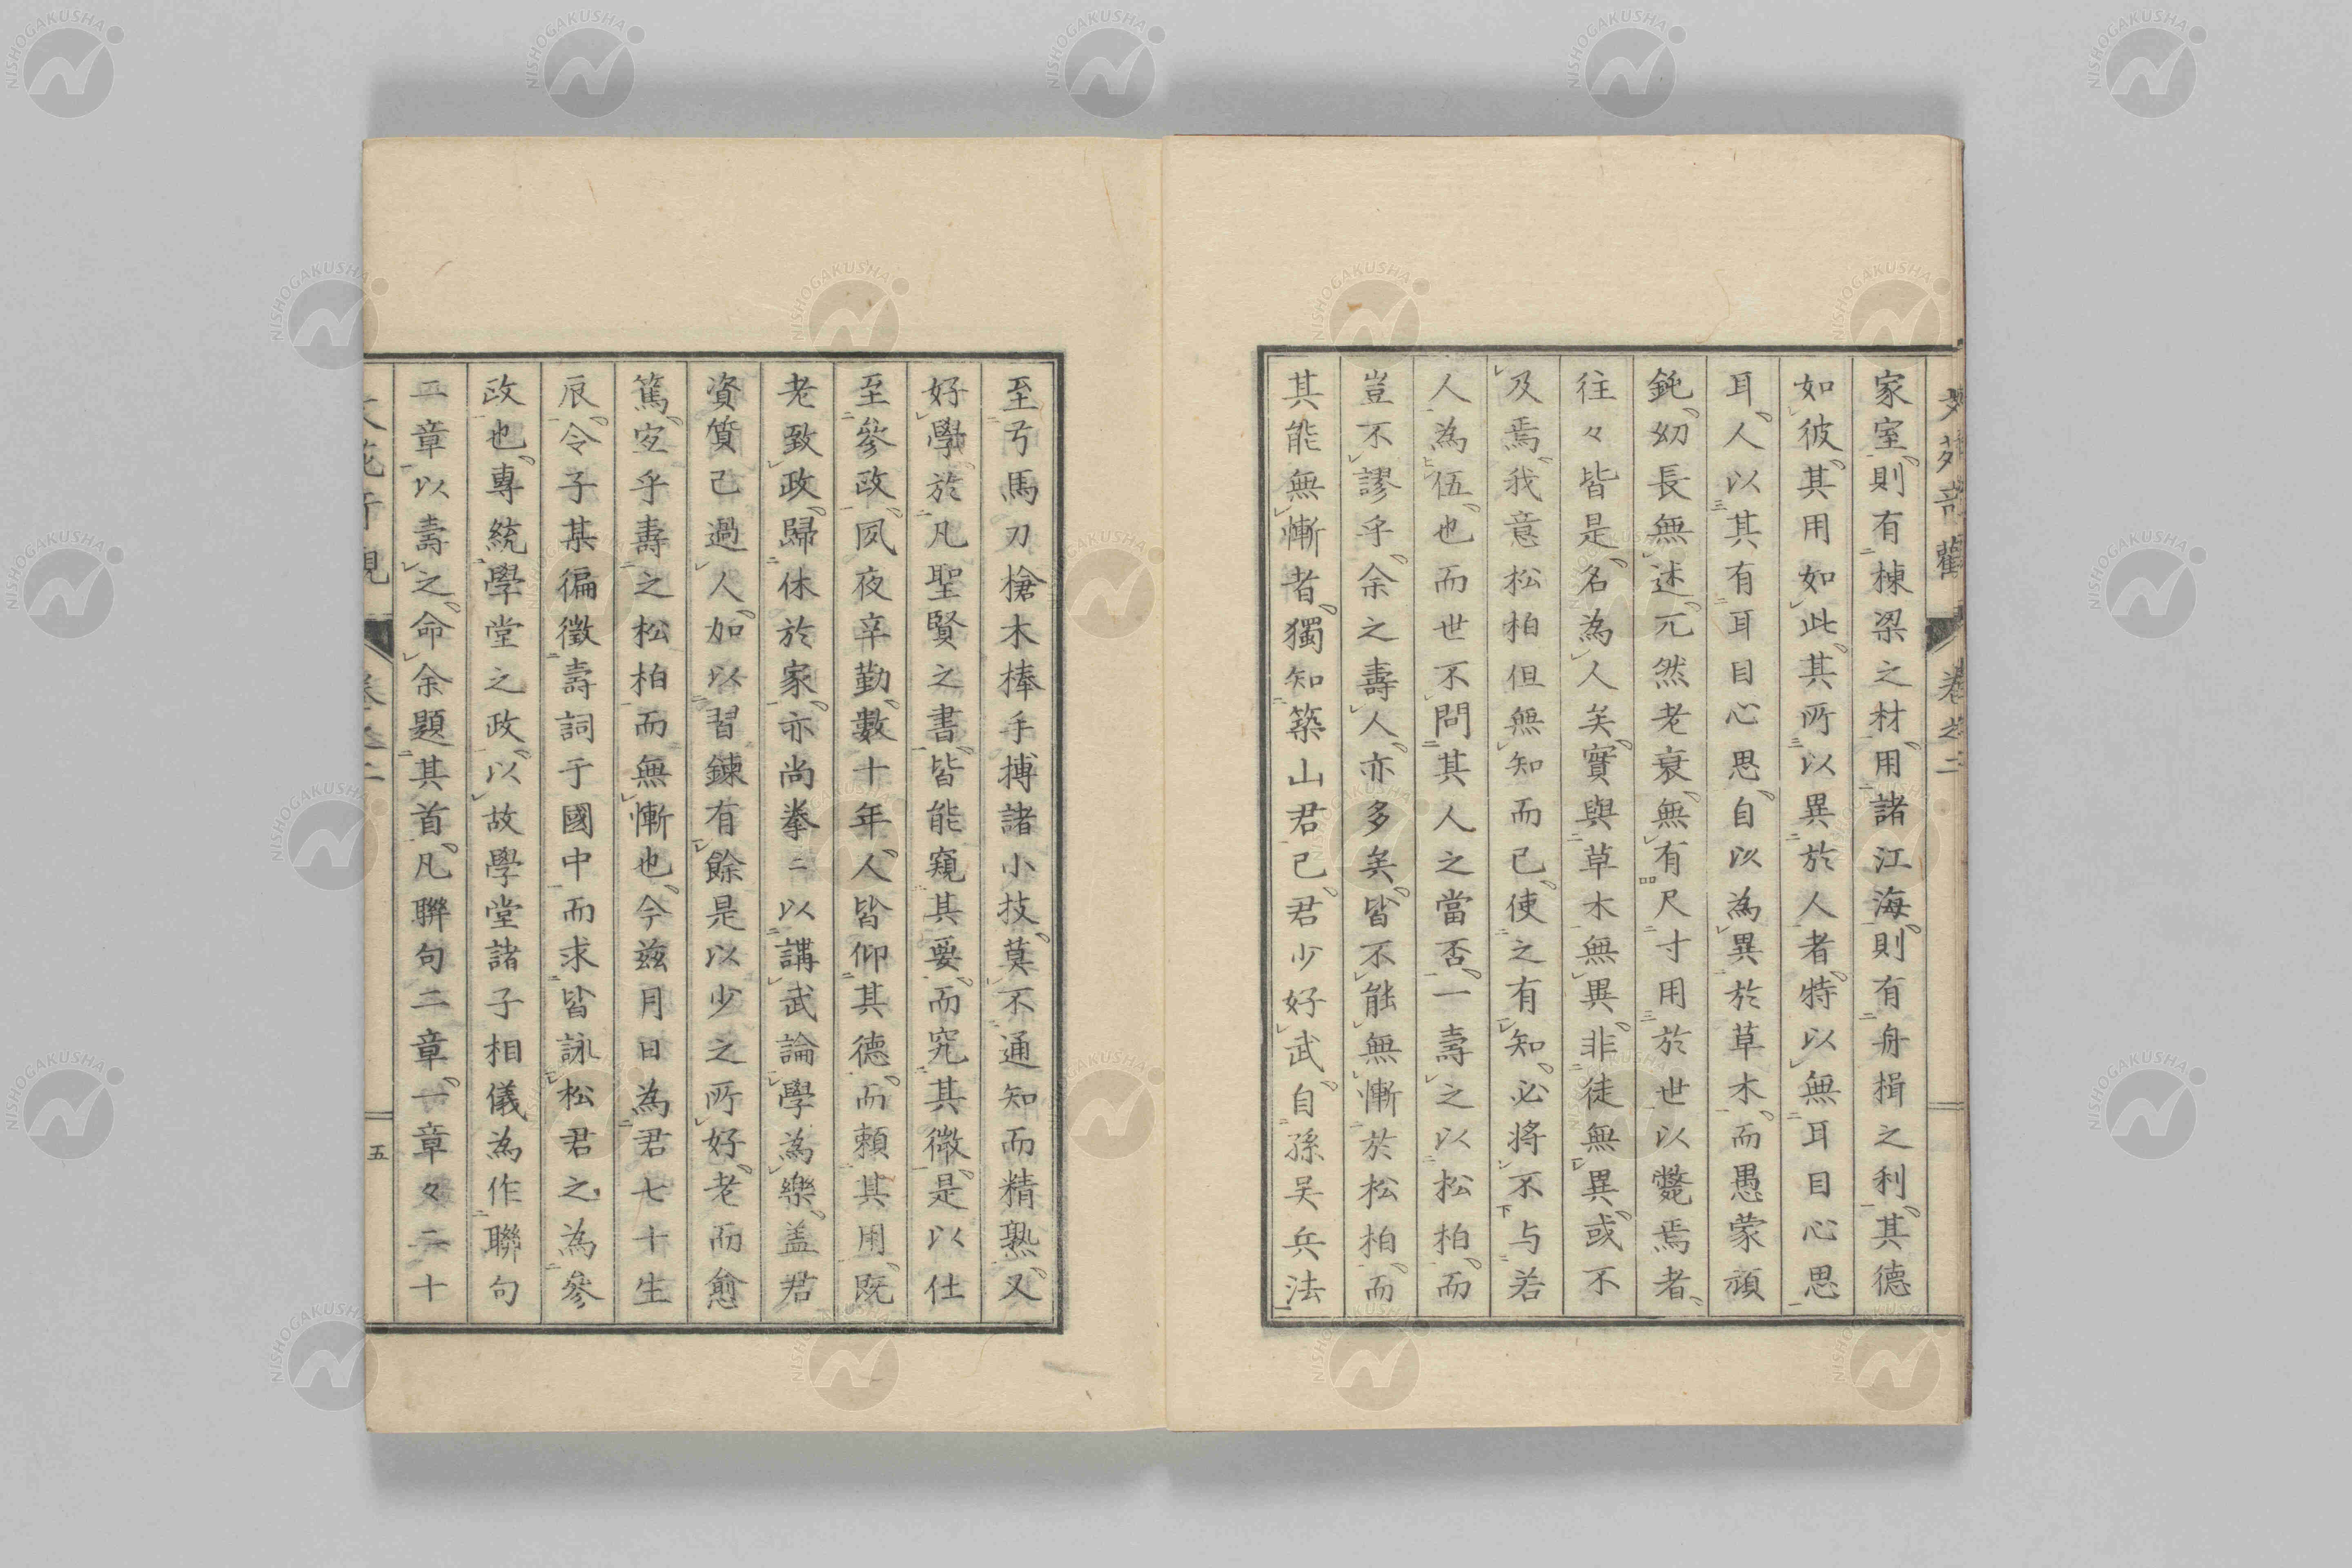 文苑奇觀 卷之二
家室則有棟梁之材用諸江海則有舟楫之利其德
如彼其用如此其所以異於人者特以無耳目心思
耳人以其有耳目心思自以為異於草木而愚蒙頑
鈍幼長無述兀然老衰無有尺寸用於世以斃焉者
往々皆是名為人矣實與草木無異非徒無異或不
及焉我意松柏但無知而已使之有知必将不与若
人為伍也而世不問其人之當否一壽之以松柏而
豈不謬乎余之壽人亦多矣皆不能無慚於松柏而
其能無慚者獨知築山君已君少好武自孫吴兵法
至弓馬刃槍木棒手搏諸小技莫不通知而精熟又
好學於凡聖賢之書皆能窺其要而究其微是以仕
至參政夙夜辛勤數十年人皆仰其德而頼其用既
老致政歸休於家亦尚拳二以講武論學為樂盖君
資質已過人如以習鍊有餘是以少之所好老而愈
篤宐乎壽之松柏而無慚也今茲月日為君七十生
辰令子某徧徵壽詞于國中而求皆詠松君之為參
政也專統學堂之政以故學堂諸子相儀為作聯句
二章以壽之命余題其首凡聯句二章一章々二十
文苑奇觀 卷之二 五
NISHOGAKUSHA